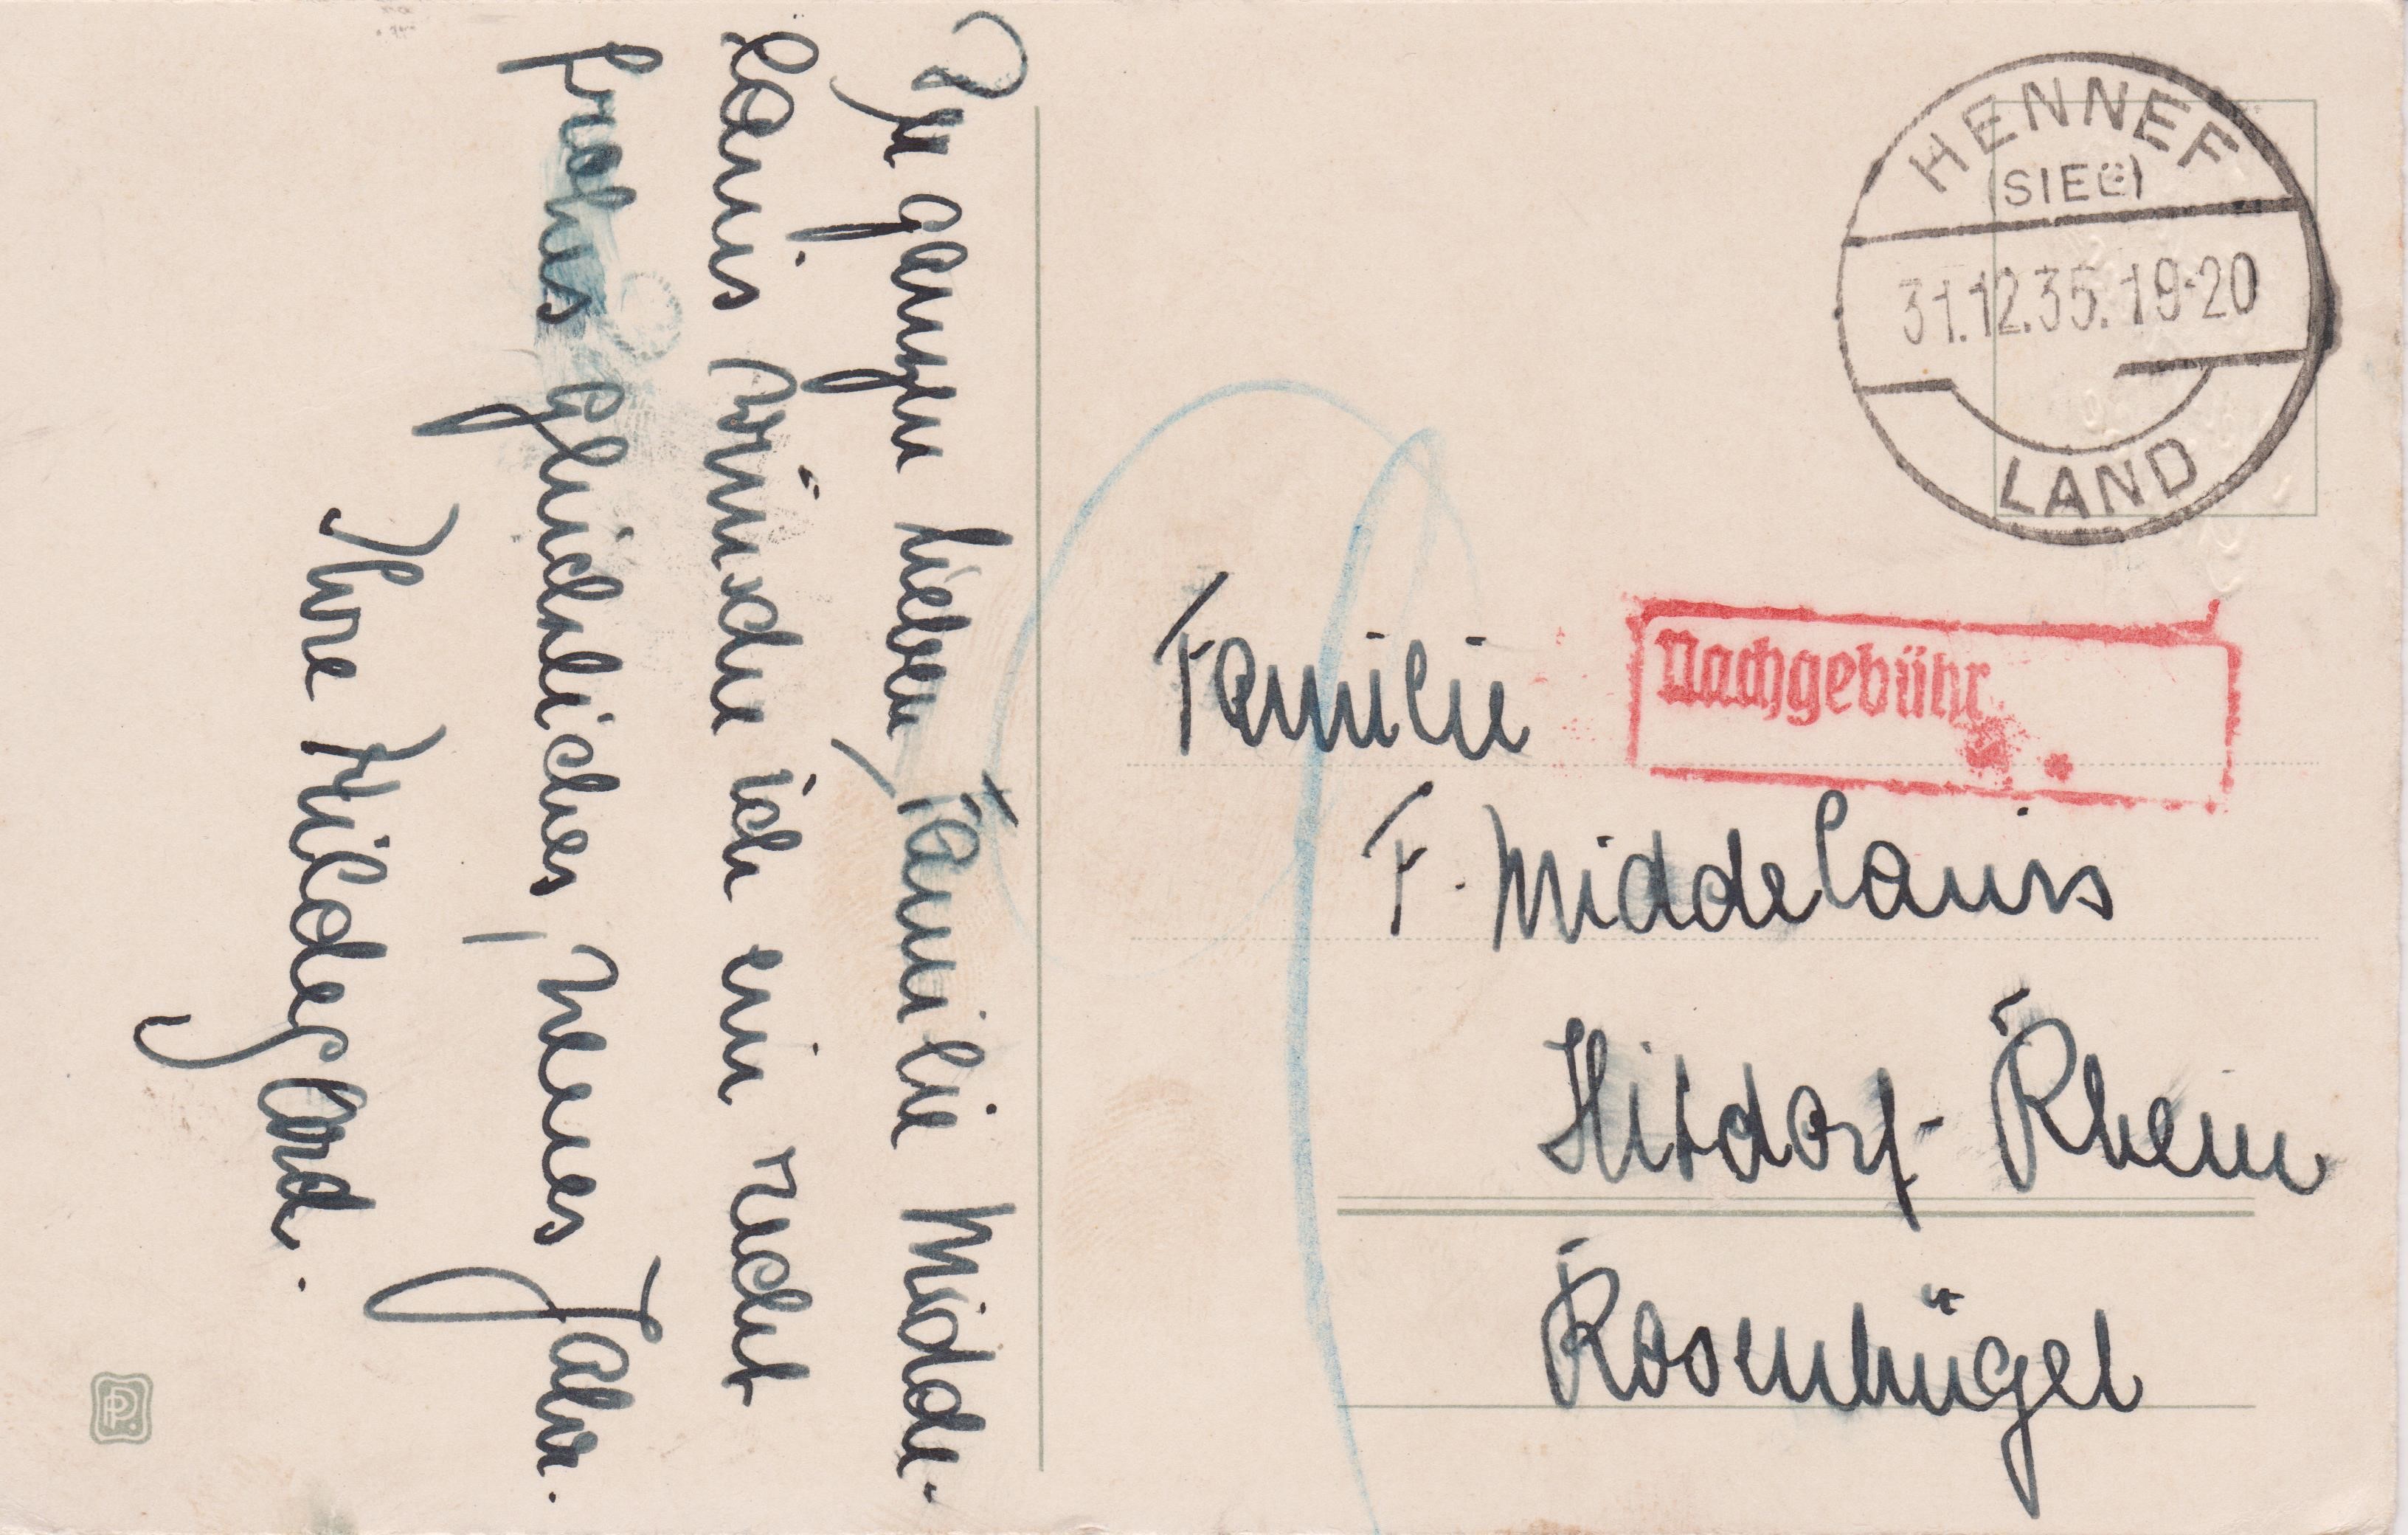 Der ganzen lieben Familie Midde-
lanis wünsche ich ein recht
frohes glückliches, neues Jahr.
Ihre Hildegard.
HENNEF
(SIEG)
31.12.35.19-20
LAND
Nachgebühr
Familie
F. Middelanis
Hitdorf-Rhein
Rosenhügel